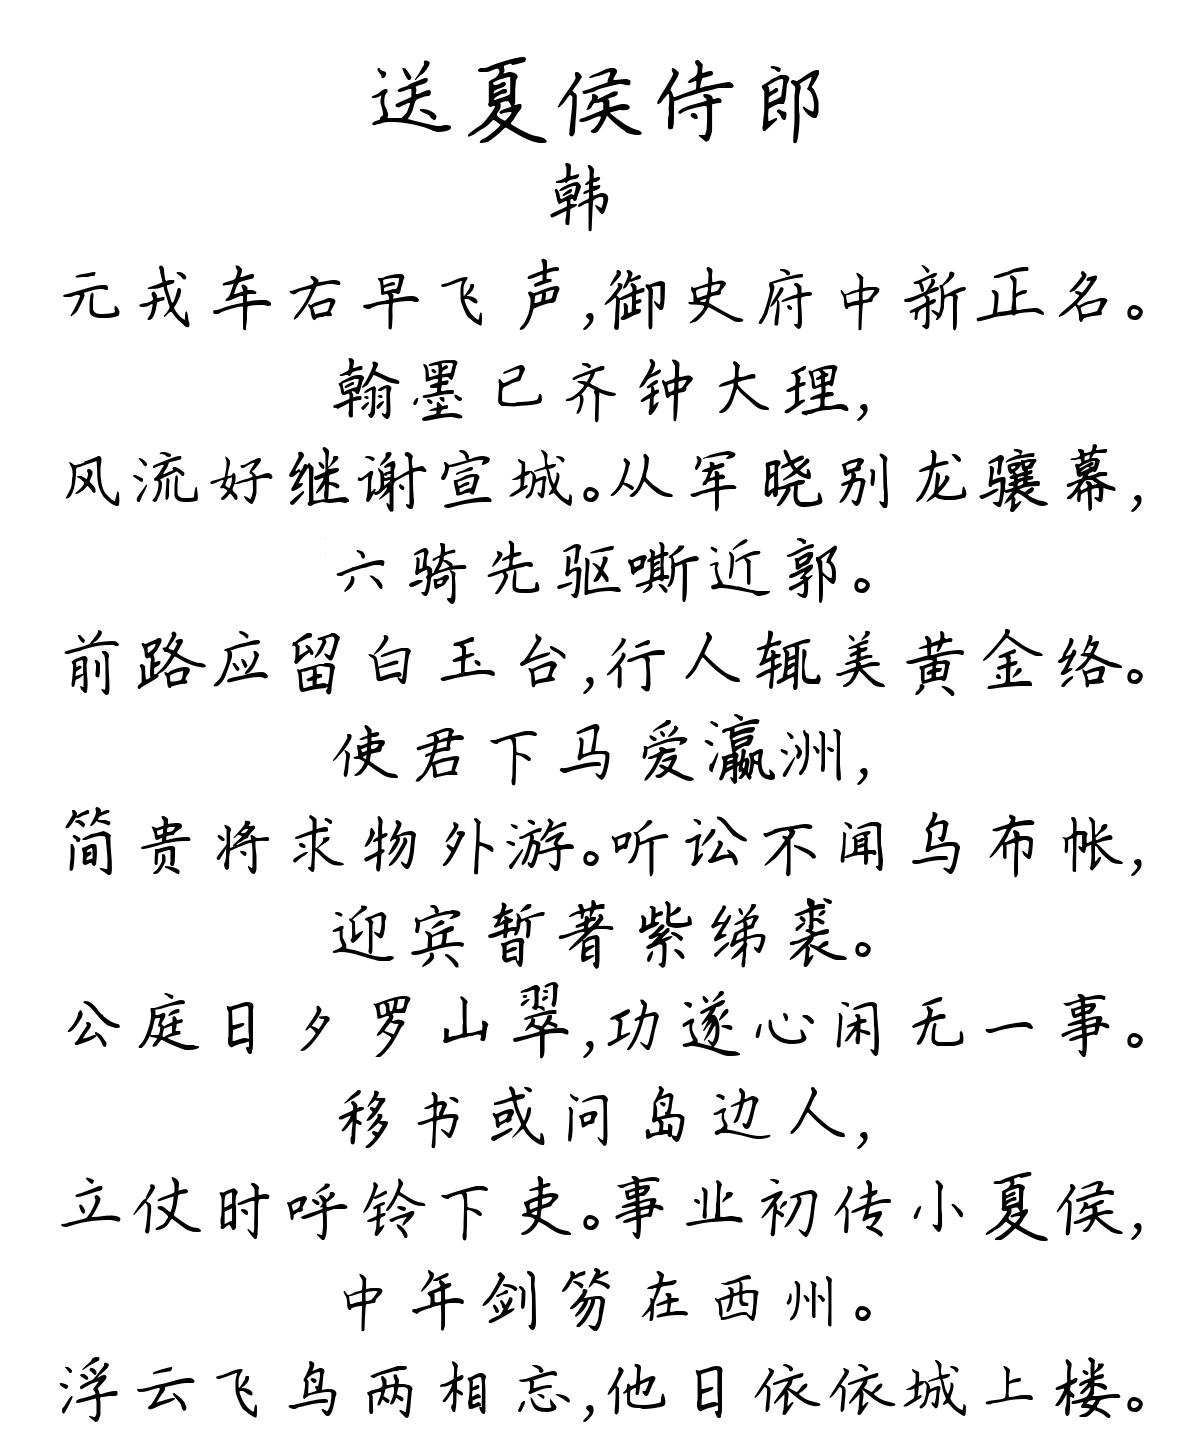 送夏侯侍郎
韩
元戎车右早飞声,御史府中新正名。
翰墨已齐钟大理,
风流好继谢宣城。从军晓别龙骧幕,
六骑先驱嘶近郭。
前路应留白玉台,行人辄美黄金络。
使君下马爱瀛洲,
简贵将求物外游。听讼不闻乌布帐,
迎宾暂著紫绨裘。
公庭日夕罗山翠,功遂心闲无一事。
移书或问岛边人,
立仗时呼铃下吏。事业初传小夏侯,
中年剑笏在西州。
浮云飞鸟两相忘,他日依依城上楼。